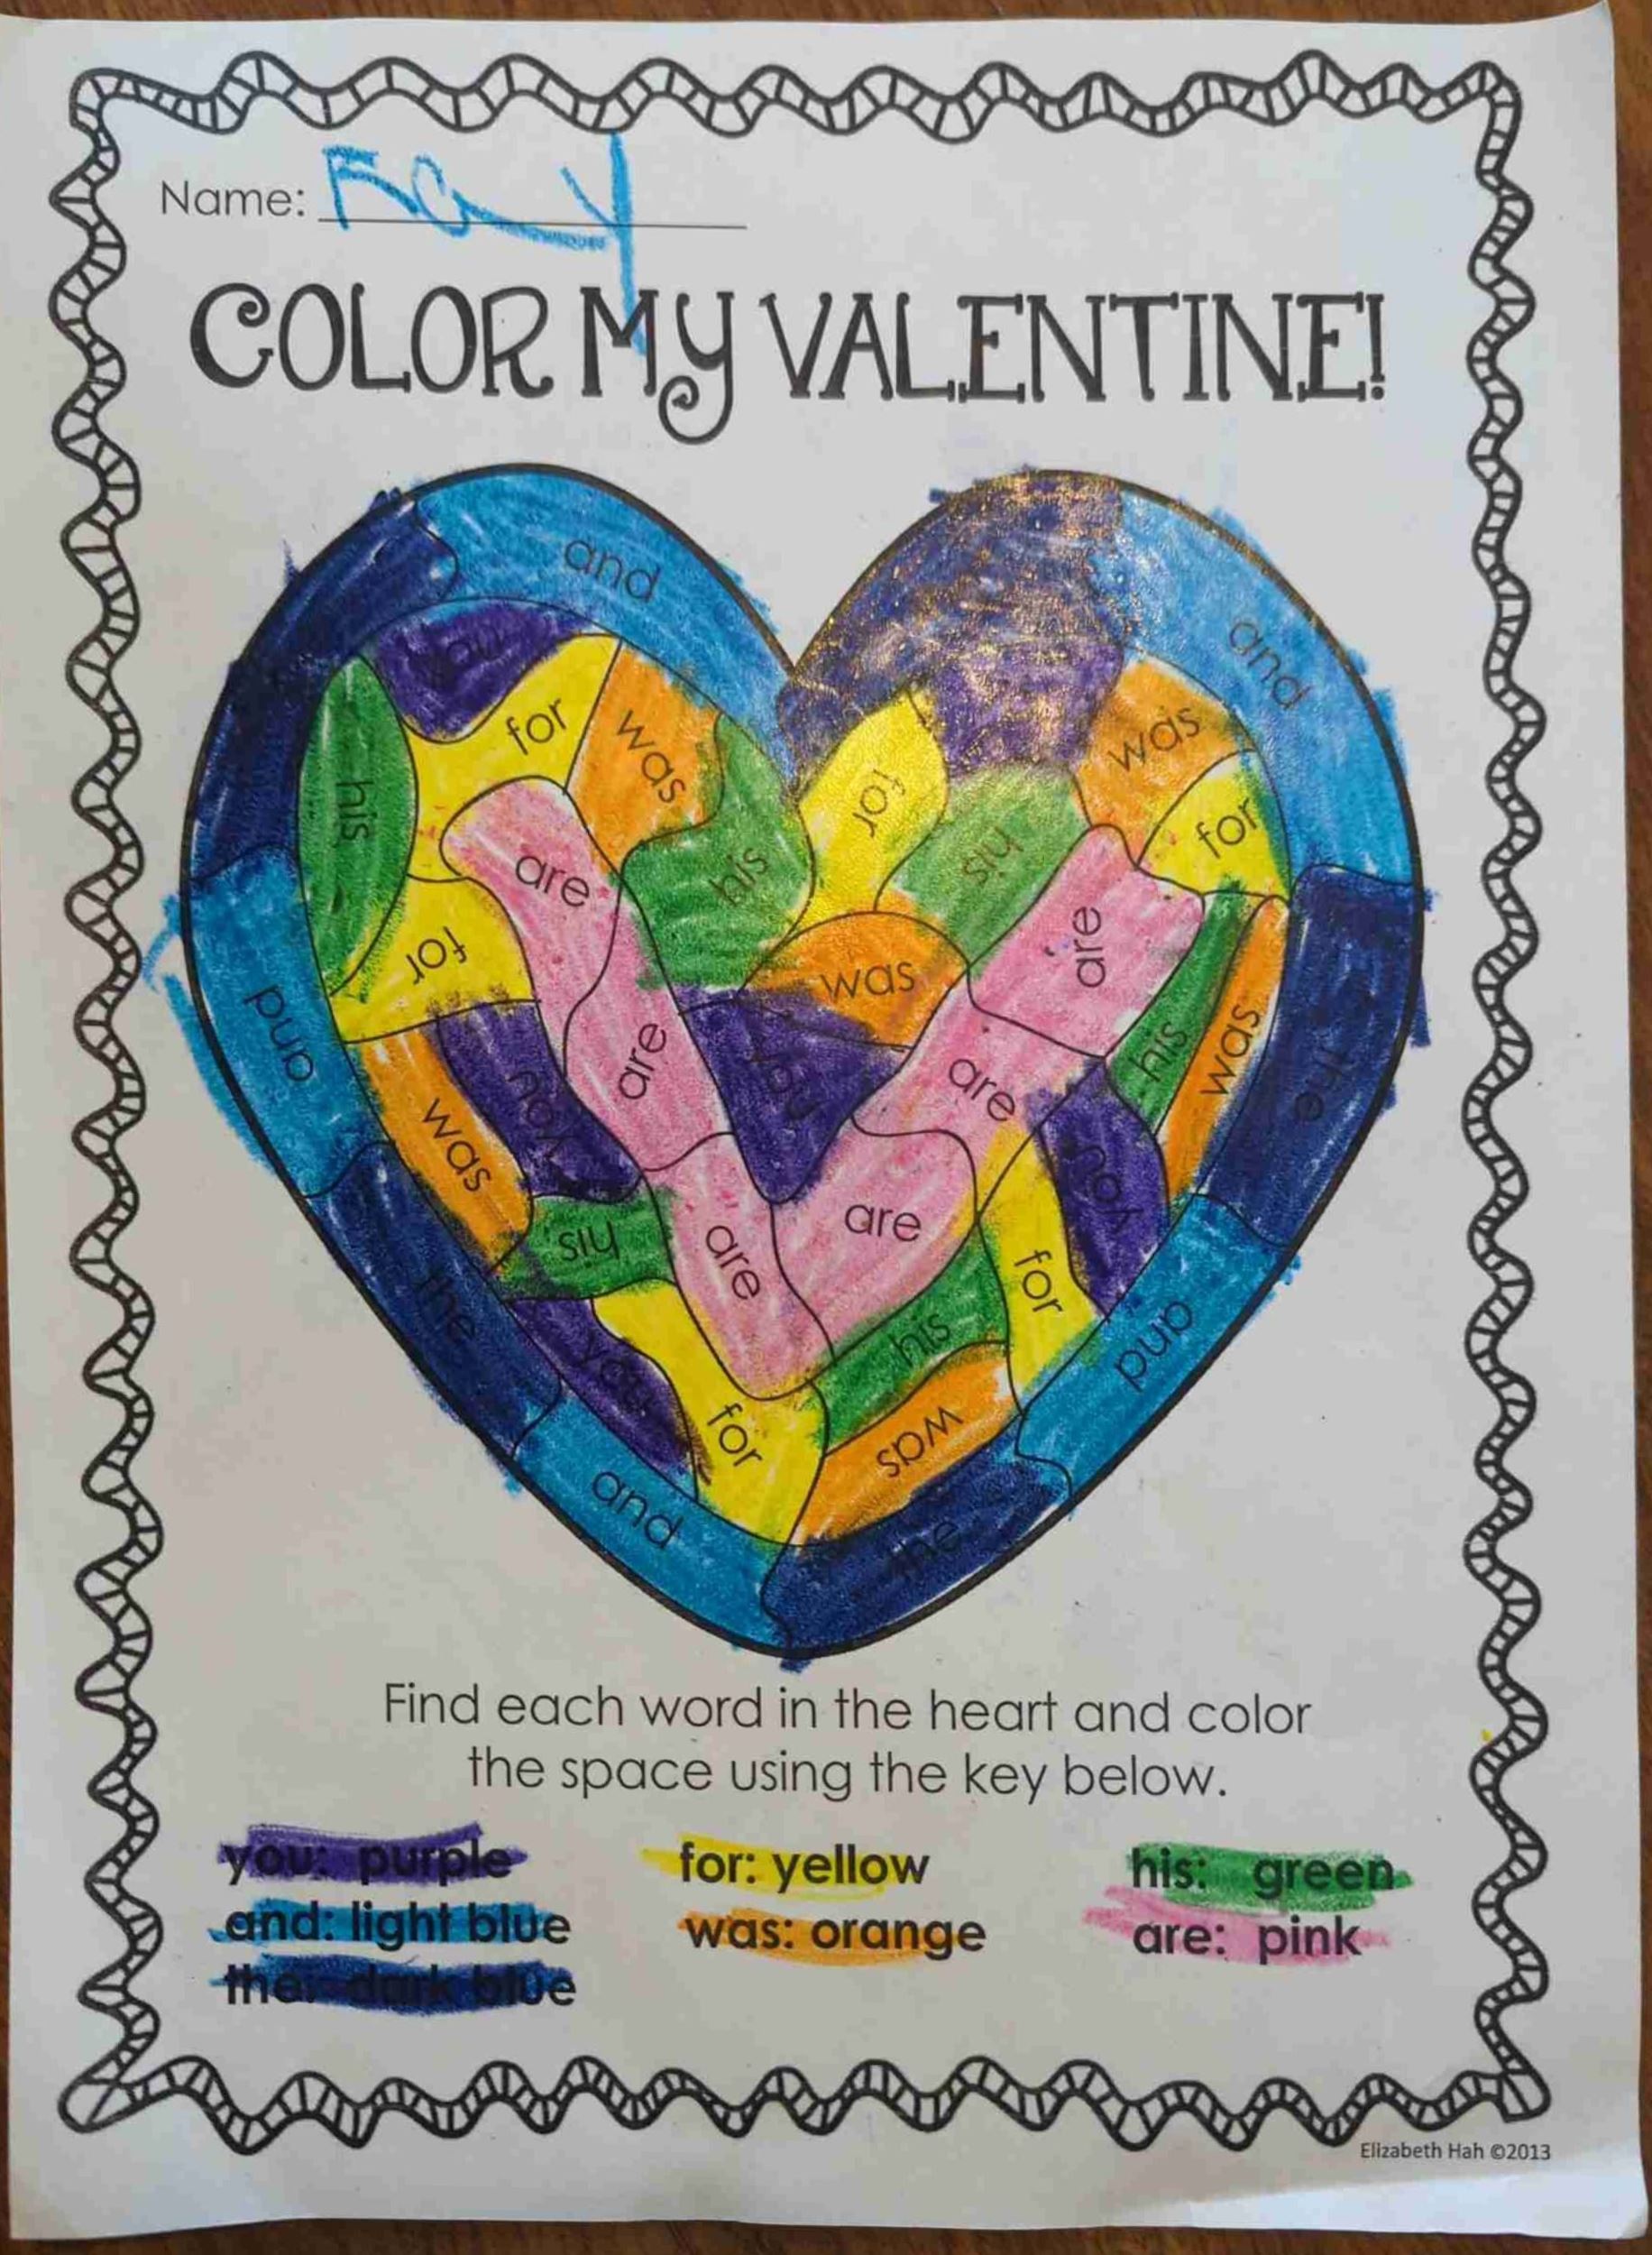 Name: Ray
COLOR MY VALENTINE!
and
and
you
for
was
his
was
for
his
for
his
are
his
for
are
was
and
are
his
was
the
was
you
are
you
you
his
are
are
for
the
you
his
and
for
was
and
the
Find each word in the heart and color
the space using the key below.
you: purple
for: yellow
his: green
and: light blue
was: orange
are: pink
the: dark blue
Elizabeth Hah ©2013